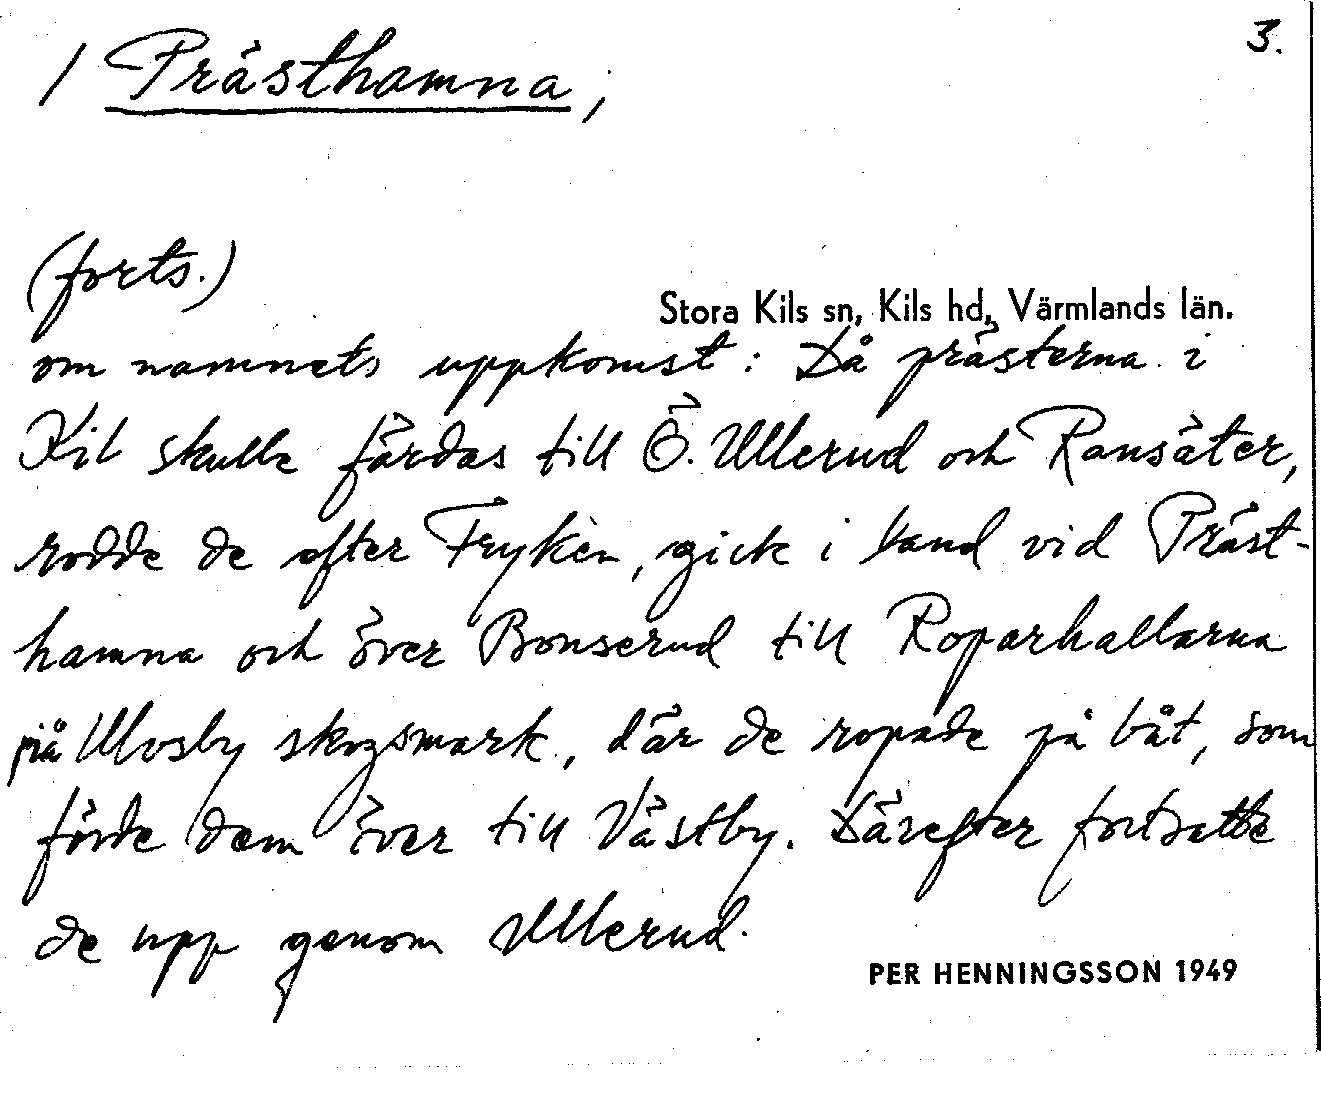 / Prästhamna, 3.
(forts.)
Stora Kils sn, Kils hd, Värmlands län.
om namnets uppkomst: Då prästerna i
Kil skulle färdas till Ö. Ullerud och Ransäter,
rodde de efter Fryken, gick i land vid Präst-
hamna och över Bonserud till Roparhallarna
på Ulvsby skogsmark, där de ropade på båt, som
förde dem över till Västby. Därefter fortsatte
de upp genom Ullerud.
PER HENNINGSSON 1949